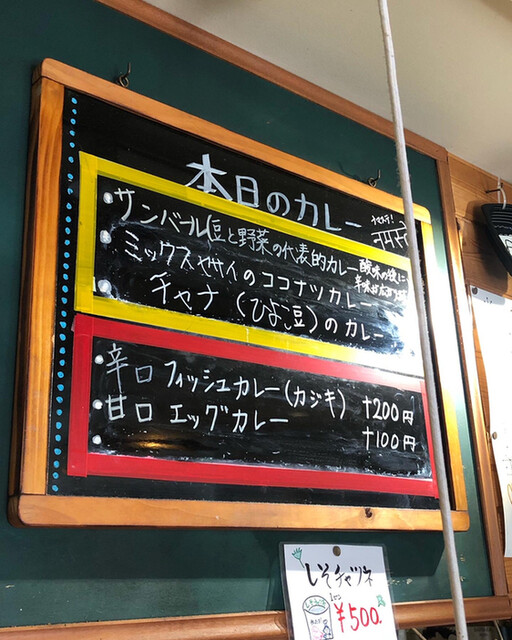 本日のカレー
サンバール(豆と野菜の代表的カレー
酸味の後に
ミックスヤサイのココナツカレー
チャナ(ひよこ豆)のカレー
辛口 フィッシュカレー(カジキ) +200円
甘口 エッグカレー +100円
しそチャツネ
¥500.